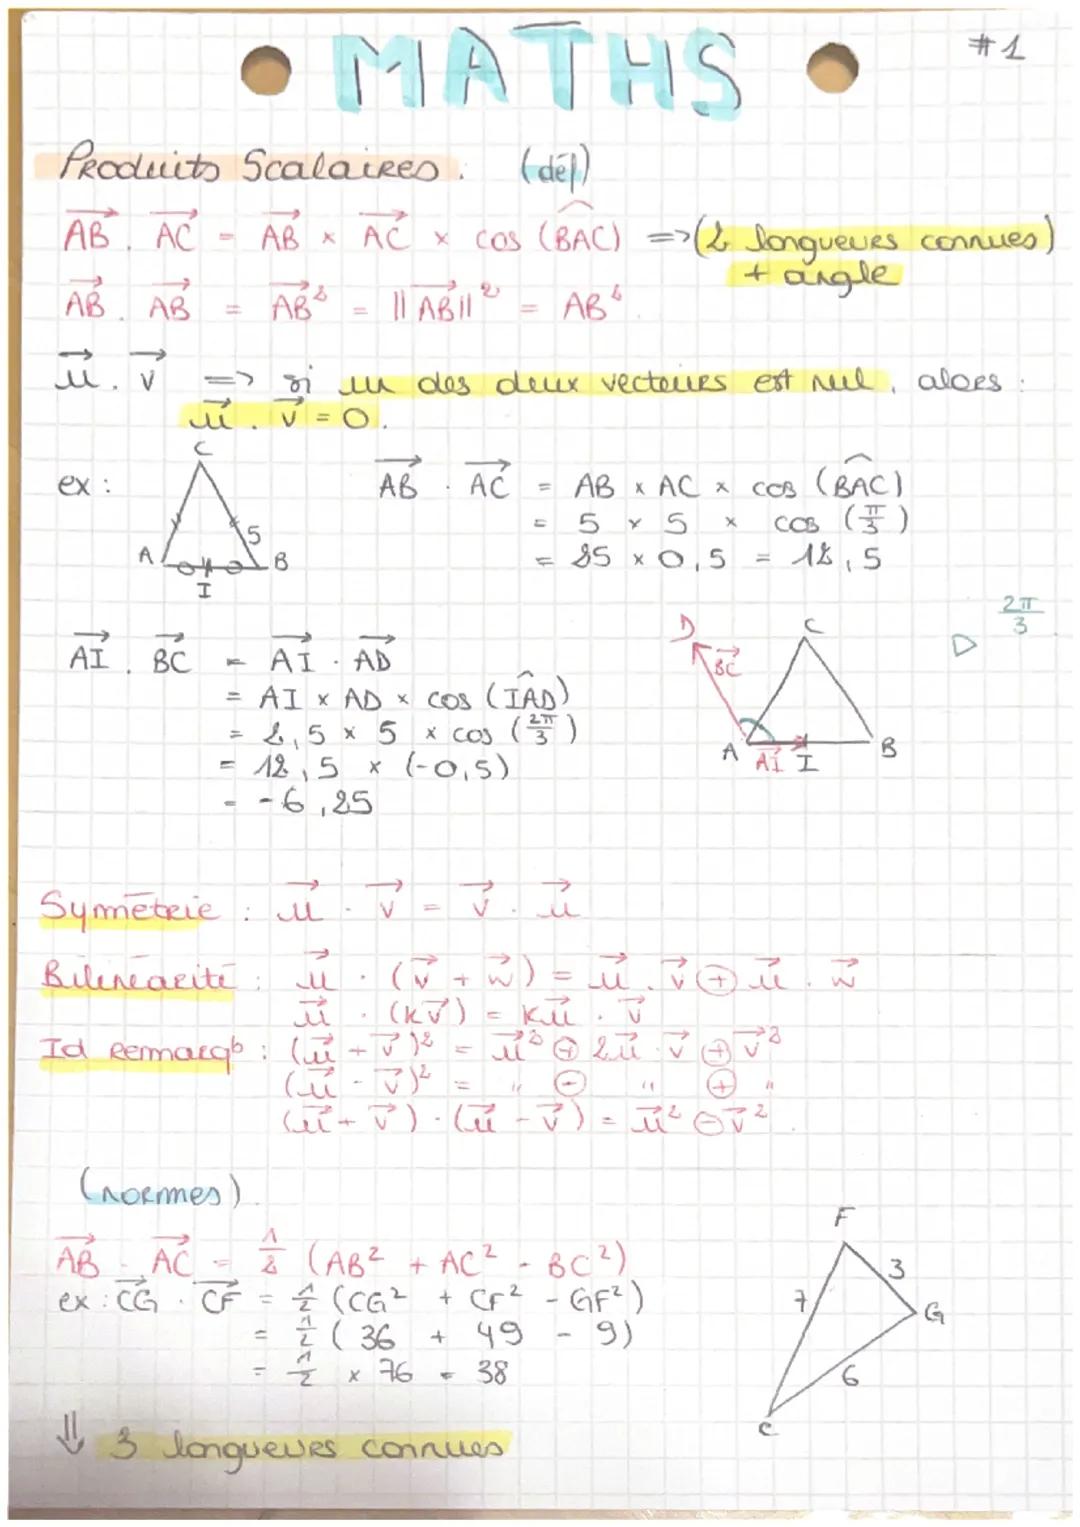 MATHS
#1
Produits Scalaires : (déf)
→AB . →AC = →AB × →AC × cos (BAC) => (2 longueurs connues)
+ angle
→AB . →AB = →AB² = ||→AB||² = AB².
→u . →v => si un des deux vecteurs est nul, alors :
→u . →v = 0.
ex :
C
5
A
B
I
→AB . →AC = AB × AC × cos (BAC)
= 5 × 5 × cos (π/3)
= 25 × 0,5 = 12,5
→AI . →BC = →AI . →AD
= AI × AD × cos (IAD)
= 2,5 × 5 × cos (2π/3)
= 12,5 × (-0,5)
= -6,25
D
→BC
C
A
→AI
I
B
▷ 2π/3
Symétrie : →u . →v = →v . →u
Bilinéarité : →u . (→v + →w) = →u . →v ⊕ →u . →w
→u . (k→v) = k→u . →v
Id remarqb : (→u + →v)² = →u² ⊕ 2→u . →v ⊕ →v²
(→u - →v)² = " ⊖ " ⊕ "
(→u + →v) . (→u - →v) = →u² ⊖ →v².
(normes)
→AB . →AC = 1/2 (AB² + AC² - BC²)
ex : →CG . →CF = 1/2 (CG² + CF² - GF²)
= 1/2 (36 + 49 - 9)
= 1/2 × 76 = 38
F
3
7
G
6
C
⇓ 3 longueurs connues